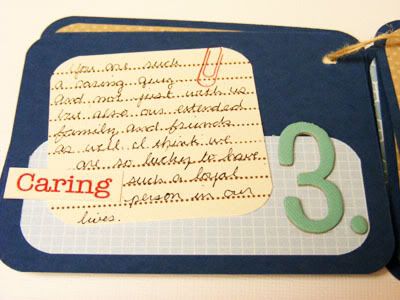 You are such
a caring guy
and not just with us
but also our extended
family and friends
as well. I think we
are so lucky to have
such a loyal
person in our
lives.
Caring
3.